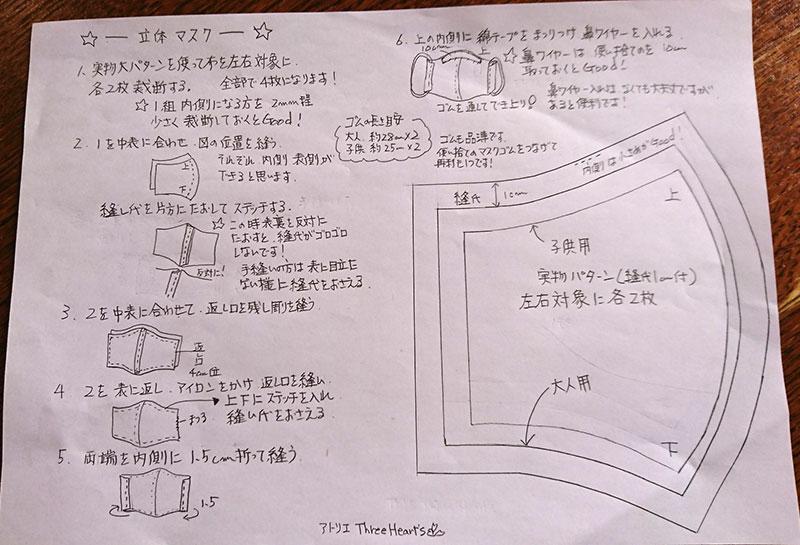 ☆ ― 立体マスク ― ☆
1. 実物大パターンを使って布を左右対象に
各2枚裁断する。 全部で4枚になります!
☆1組 内側になる方を 2mm程
少さく裁断しておくとGood!
2. 1を中表に合わせ、図の位置を縫う。
上
下
それぞれ 内側 表側が
できると思います。
縫し代を片方にたおして ステッチする。
☆この時表裏を反対に
たおすと、縫代がゴロゴロ
しないです!
反対に!
手縫いの方は 表に目立た
ない様に縫代をおさえる。
3. 2を中表に合わせて、返し口を残し周りを縫う
返し口
4cm位
4. 2を表に返し、アイロンをかけ 返し口を縫い
上下にステッチを入れ
縫い代をおさえる
まつる
5. 両端を内側に 1.5cm折って縫う
1.5
6. 上の内側に 綿テープをまつりつけ 鼻ワイヤーを入れる。
10cm
上
☆鼻ワイヤーは 使い捨てのを 10cm
取っておくとGood!
鼻ワイヤー入れは なくても大丈夫ですが
あると便利です!
ゴムを通して でき上り
ゴムの長さ目安
大人 約28cm×2
子供 約25cm×2
ゴムも品薄です。
使い捨てのマスクゴムをつなげて
再利用もです!
内側は小さめがGood!
縫代
1cm
上
子供用
実物パターン(縫代1cm付)
左右対象に各2枚
大人用
下
アトリエ Three Heart's